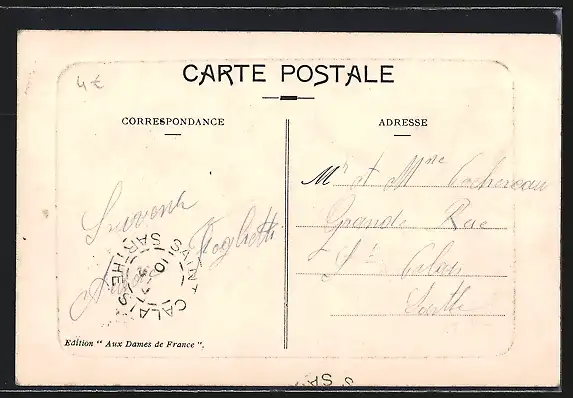 4€
CARTE POSTALE
CORRESPONDANCE
ADRESSE
Souvenir
SAINT CALAIS
SARTHE
10
Edition " Aux Dames de France ".
Mr et Mme
Grande Rue
St Calais
Sarthe